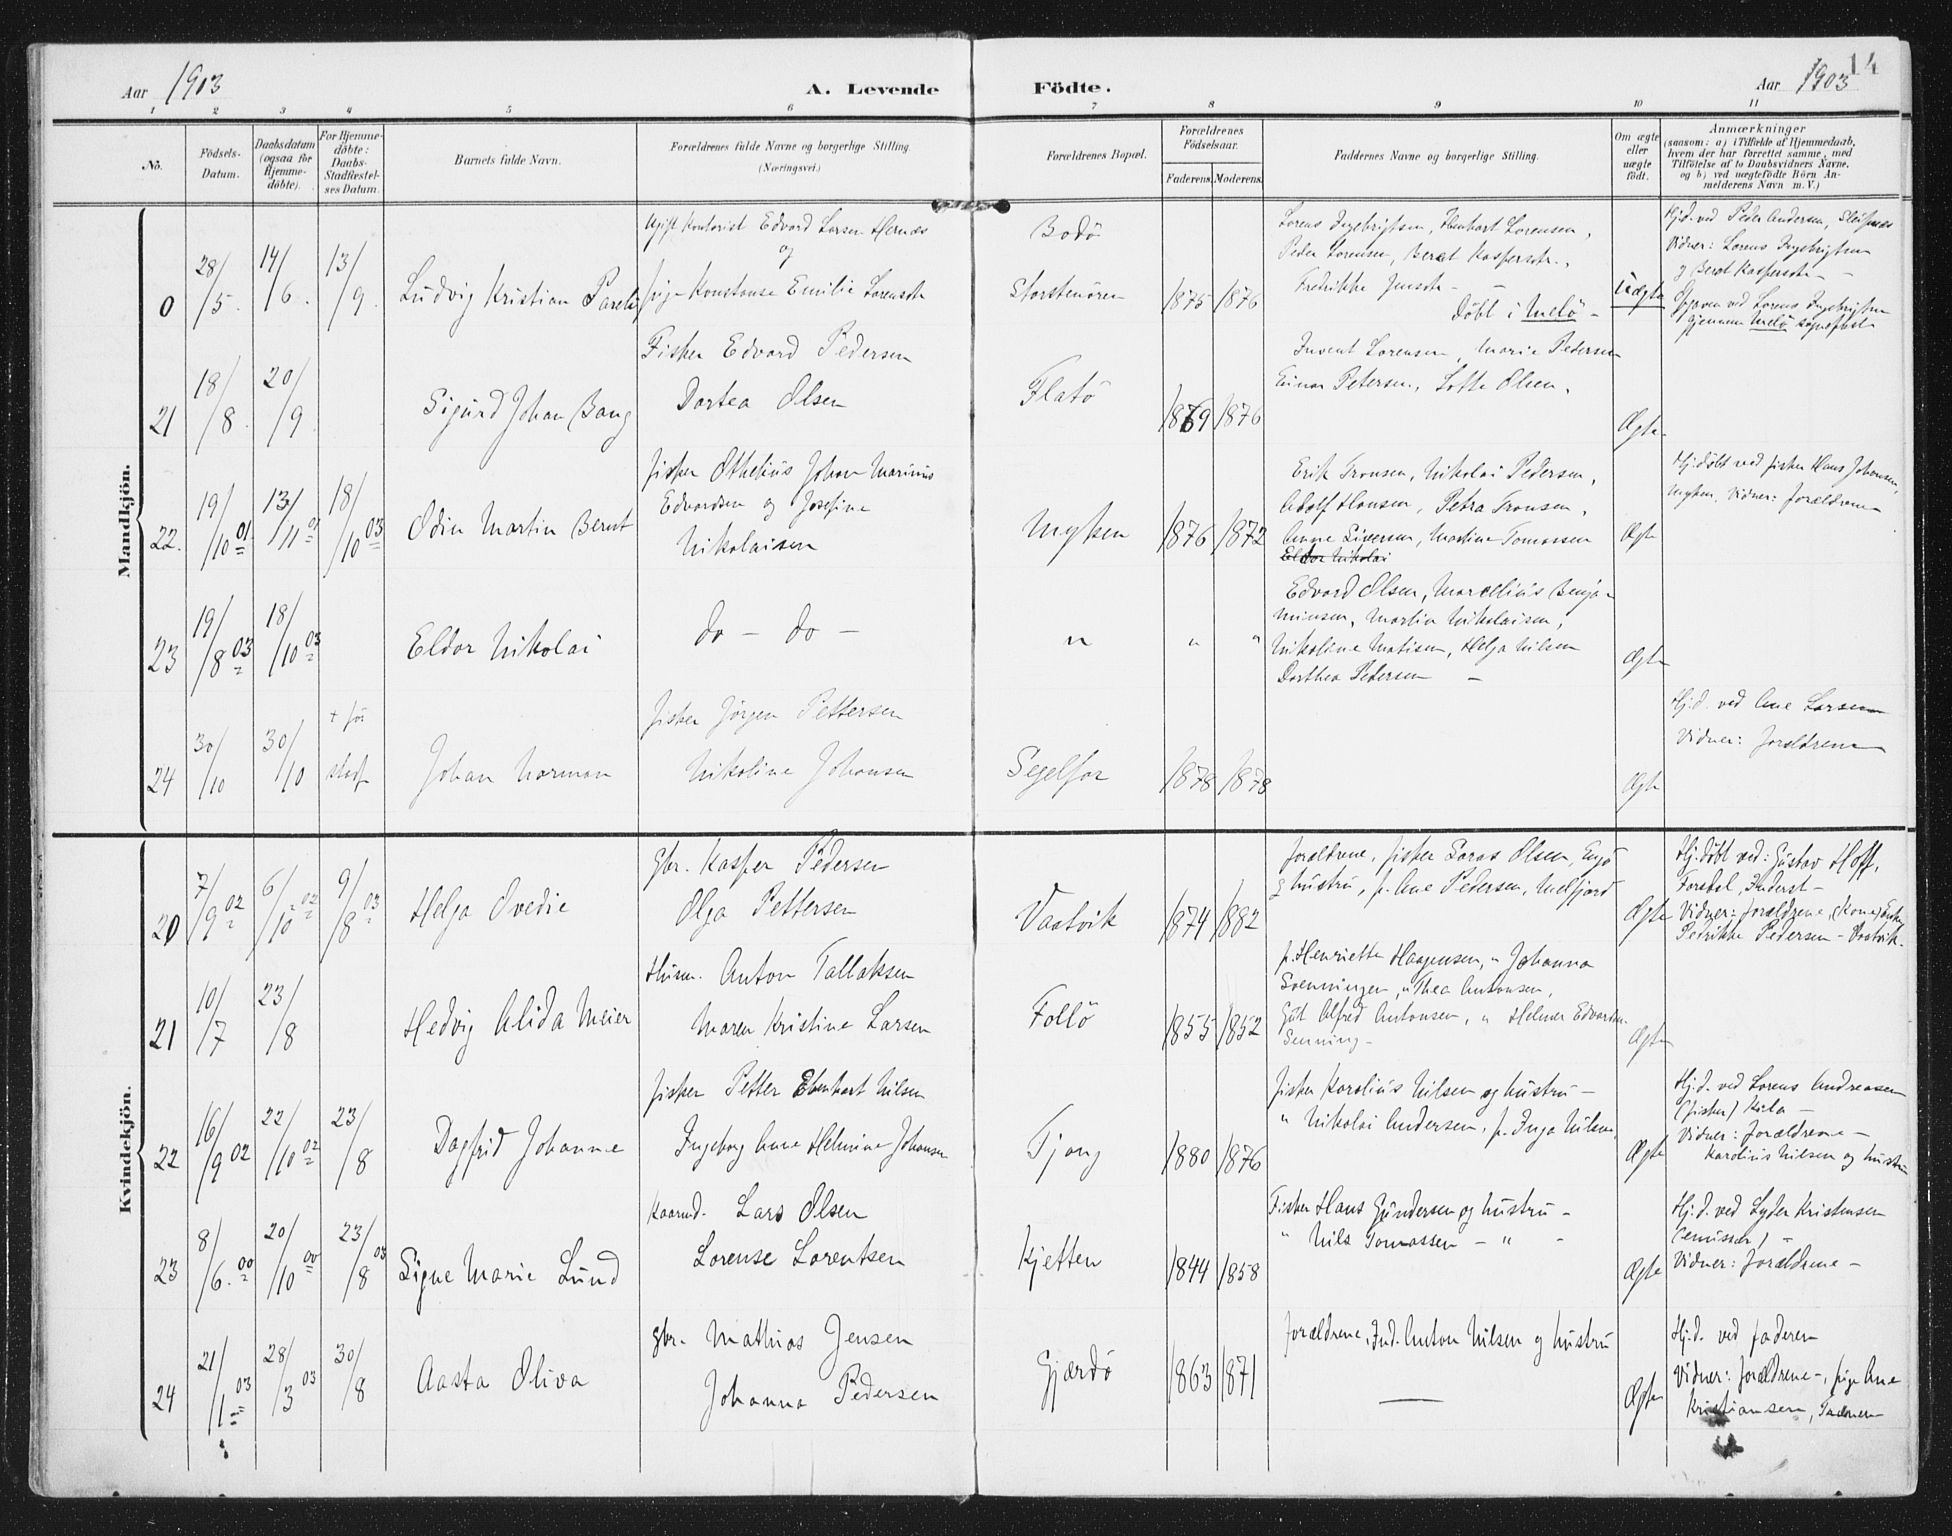 14
Aar 1903
A. Levende Födte.
Aar 1903
1 2 3 4 5 6 7 8 9 10 11
No.
Födsels-Datum.
Daabsdatum (ogsaa for Hjemme-döbte).
For Hjemme-döbte: Daabs-Stadfæstel-ses Datum.
Barnets fulde Navn.
Forældrenes fulde Navne og borgerlige Stilling. (Næringsvei.)
Forældrenes Bopæl.
Forældrenes Födselsaar.
Faderens. Moderens.
Faddernes Navne og borgerlige Stilling.
Om ægte eller uægte födt.
Anmærkninger
(saasom: a) i Tilfælde af Hjemmedaab, hvem der har forrettet samme, med Tilföielse af to Daabsvidners Navne, og b) ved uægtefödte Börn An-melderens Navn m. V.)
Mandkjön.
0 28/5 14/6 13/9
Ludvig Kristian
Ugift Kontorist Edvard Larsen Hernæs
og
pige Konstanse Emilie Lorensdtr
Bodö
Storstenören
1875 1876
Lorens Ingebrigtsen, Ebenhart Lorensen,
Peder Lorensen, Beret Kaspersdtr.,
Fredrikke Jensdtr –
Döbt i Melö –
Uægte
Hj.d. ved Peder Andersen,
Vidner: Lorens Ingebrigtsen
og Beret Kaspersdtr –
Opgiven ved Lorens Ingebrigtsen
gjennem Melö
21 18/8 20/9
Sigurd Johan Bang
Fisker Edvard Pedersen
Dortea Olsen
Flatö
1869 1876
Lorensen, Marie Pedersen
Einar Petersen, Lotte Olsen.
Ægte
22. 19/10 01 13/11 01 18/10 03
Odin Martin Bernt
fisker Othelius Johan Marinius
Edvardsen og Josefine
Nikolaisen
Myken
1876 1872
Erik Tronsen, Nikolai Pedersen,
Adolf Hansen, Petra Tronsen,
Anne Siversen, Martine Tomassen
Eldor Nikolai
Ægte
Hj.döbt ved fisker Hans Johansen,
Myken. Vidner: forældrene
23 19/8 03 18/10 03
Eldor Nikolai
do – do –
" " "
Edvard Olsen, Marcelius Benja-
minsen, Martin Nikolaisen,
Nikoline Matisen, Helga Nilsen
Dorthea Pedersen –
Ægte
24 30/10 30/10 + för stadf
Johan Norman
fisker Jörgen Pettersen
Nikoline Johansen
Segelfor
1878 1878
Ægte
Hj.d. ved Ane Larsen
Vidner: forældrene
Kvindekjön.
20 7/9 02 6/10 02 9/8 03
Helga Ovedie
Gbr. Kasper Pedersen
Olga Pettersen
Vaatvik
1874 1882
forældrene, fisker Laras Olsen, Engö
og hustru, p. Ane Pedersen, Melfjord
Ægte
Hj.döbt ved: Gustav Hoff,
Forsdal,
Vidner: forældrene, (Kone)
Pedrikke Pedersen – Vaatvik.
21 10/7 23/8
Hedvig Alida Meier
Husm. Anton Tallaksen
Maren Kristine Larsen
Follö
1855 1852
p. Henriette Haagensen, " Johanna
Svenningen, " Thea Antonsen,
Gut Alfred Antonsen, " Helmer Edvardsen
Senning –
Ægte
22 16/9 02 22/10 02 23/8
Dagfrid Johanne
fisker Petter Ebenhart Nilsen
Ingeborg Anne Helmine Johansen
Tjong
1880 1876
fisker Karolius Nilsen og hustru –
" Nikolai Andersen, p. Inga Nilsen,
Ægte
Hj.d. ved Lorens Andreasen
(fisker) Kila –
Vidner: forældrene –
Karolius Nilsen og hustru
23 8/6. 00 20/10 00 23/8 03
Signe Marie Lund
Kaarmd. Lars Olsen
Lorense Lorentsen
Kjetten
1844 1858
Fisker Hans Gundersen og hustru –
" Nils Tomassen – " –
Ægte
Hj.d. ved Lyder Kristensen
(emissær) –
Vidner: forældrene –
24 21/1 03 28/3 03 30/8
Aasta Oliva
gbr. Mathias Jensen
Johanna Pedersen
Gjærdö
1863 1871
forældrene, Ind. Anton Nilsen og hustru
—
Ægte
Hj.d. ved faderen
Vidner: forældrene –, pige Ane
Kristiansen,